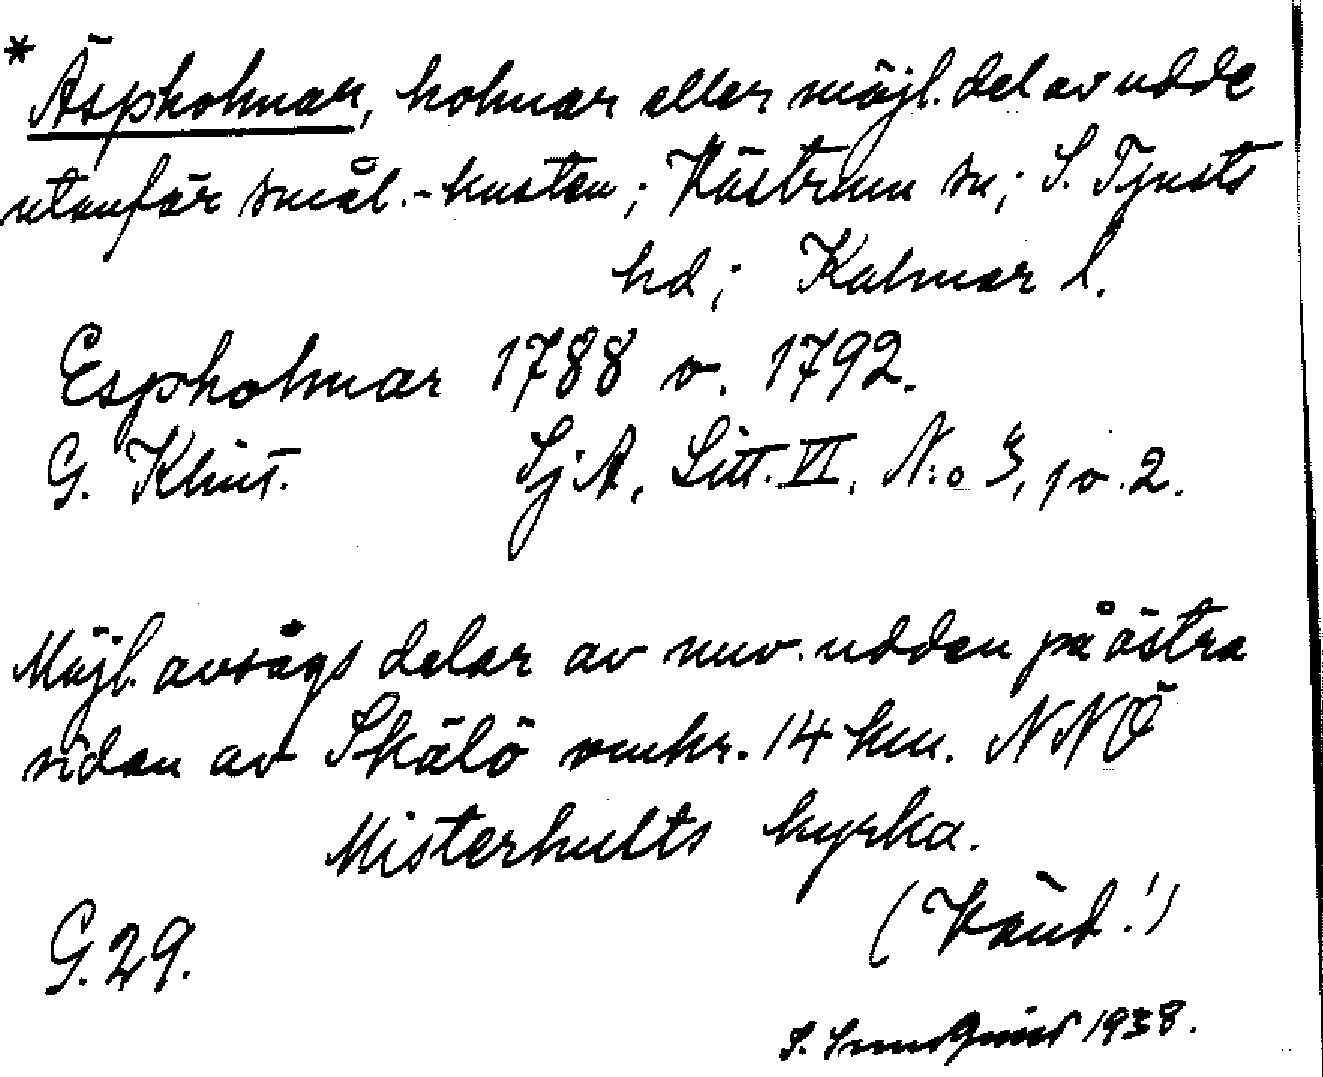 * Äspholmar, holmar eller möjl. del av udde
utanför smål.-kusten; Västrum sn; S. Tjusts
hd; Kalmar l.
Espholmar 1788 o. 1792.
G. Klint. SjA, Litt. VI, N:o 3, 1 o. 2.
Möjl. avsågs delar av nuv. udden på östra
sidan av Skälö omkr. 14 km. NNÖ
Misterhults kyrka.
(Vänd!)
G. 29.
S. 1938.